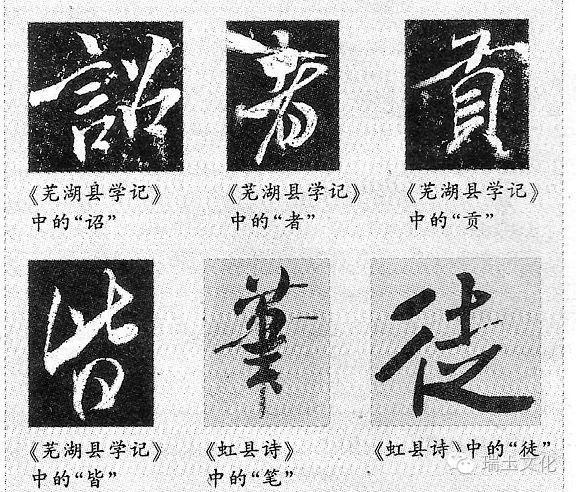 詔 者 貢
《芜湖县学记》 《芜湖县学记》 《芜湖县学记》
中的“诏” 中的“者” 中的“贡”
皆 筆 徒
《芜湖县学记》 《虹县诗》 《虹县诗》中的“徒”
中的“皆” 中的“笔”
瑞玉文化